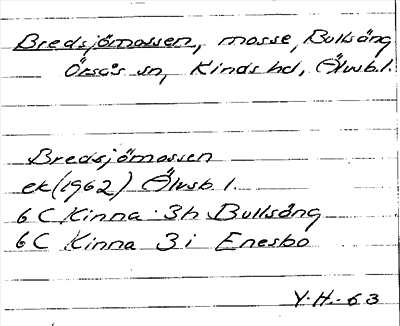 Bredsjömossen, mosse, Bullsäng
Örsås sn, Kinds hd, Älvsb. l.
Bredsjömossen
ek (1962) Älvsb. l.
6 C Kinna 3h Bullsäng
6 C Kinna 3i Enesbo
Y.H.-63